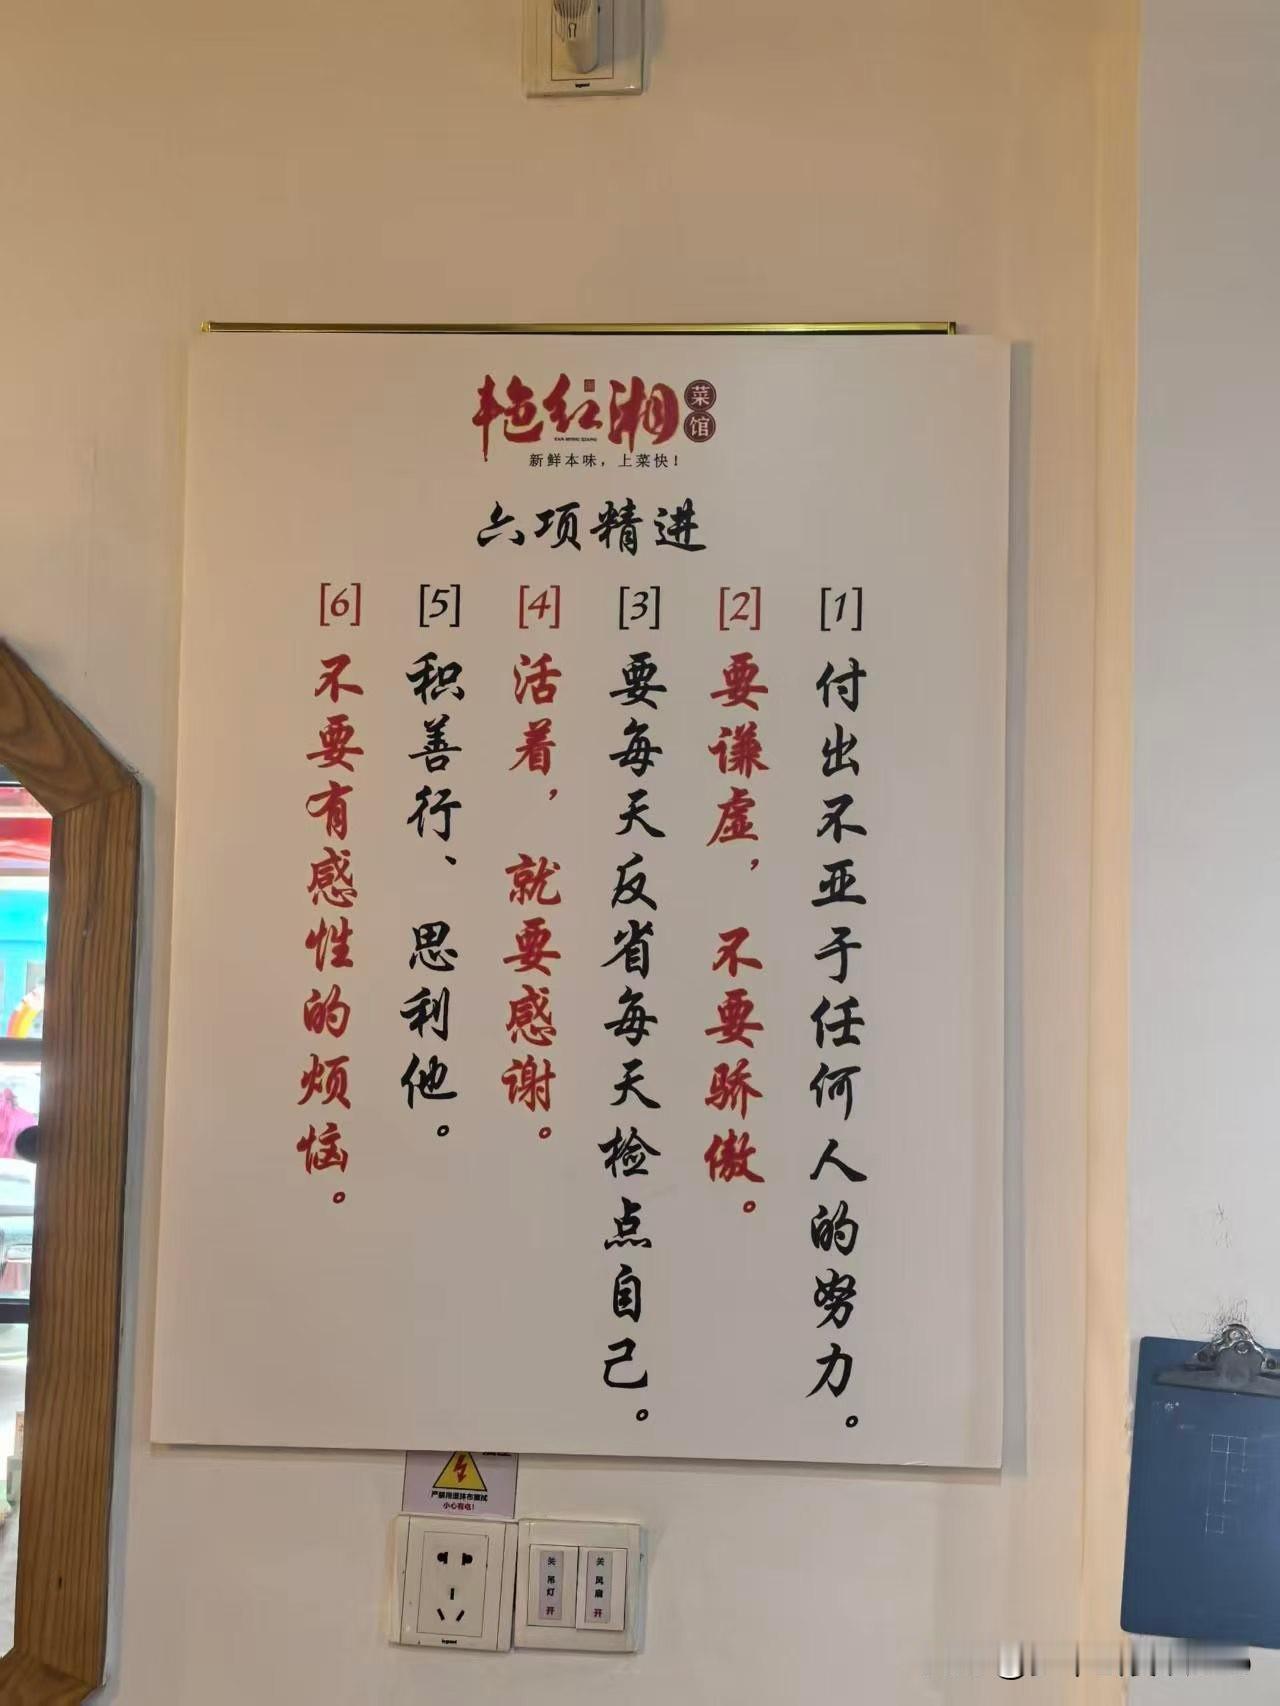 legrand
艳红湘
菜馆
YAN HONG XIANG
新鲜本味，上菜快！
六项精进
[1] 付出不亚于任何人的努力。
[2] 要谦虚，不要骄傲。
[3] 要每天反省每天检点自己。
[4] 活着，就要感谢。
[5] 积善行、思利他。
[6] 不要有感性的烦恼。
严禁用湿抹布擦拭
小心有电！
关 吊灯 开
关 风扇 开
legrand